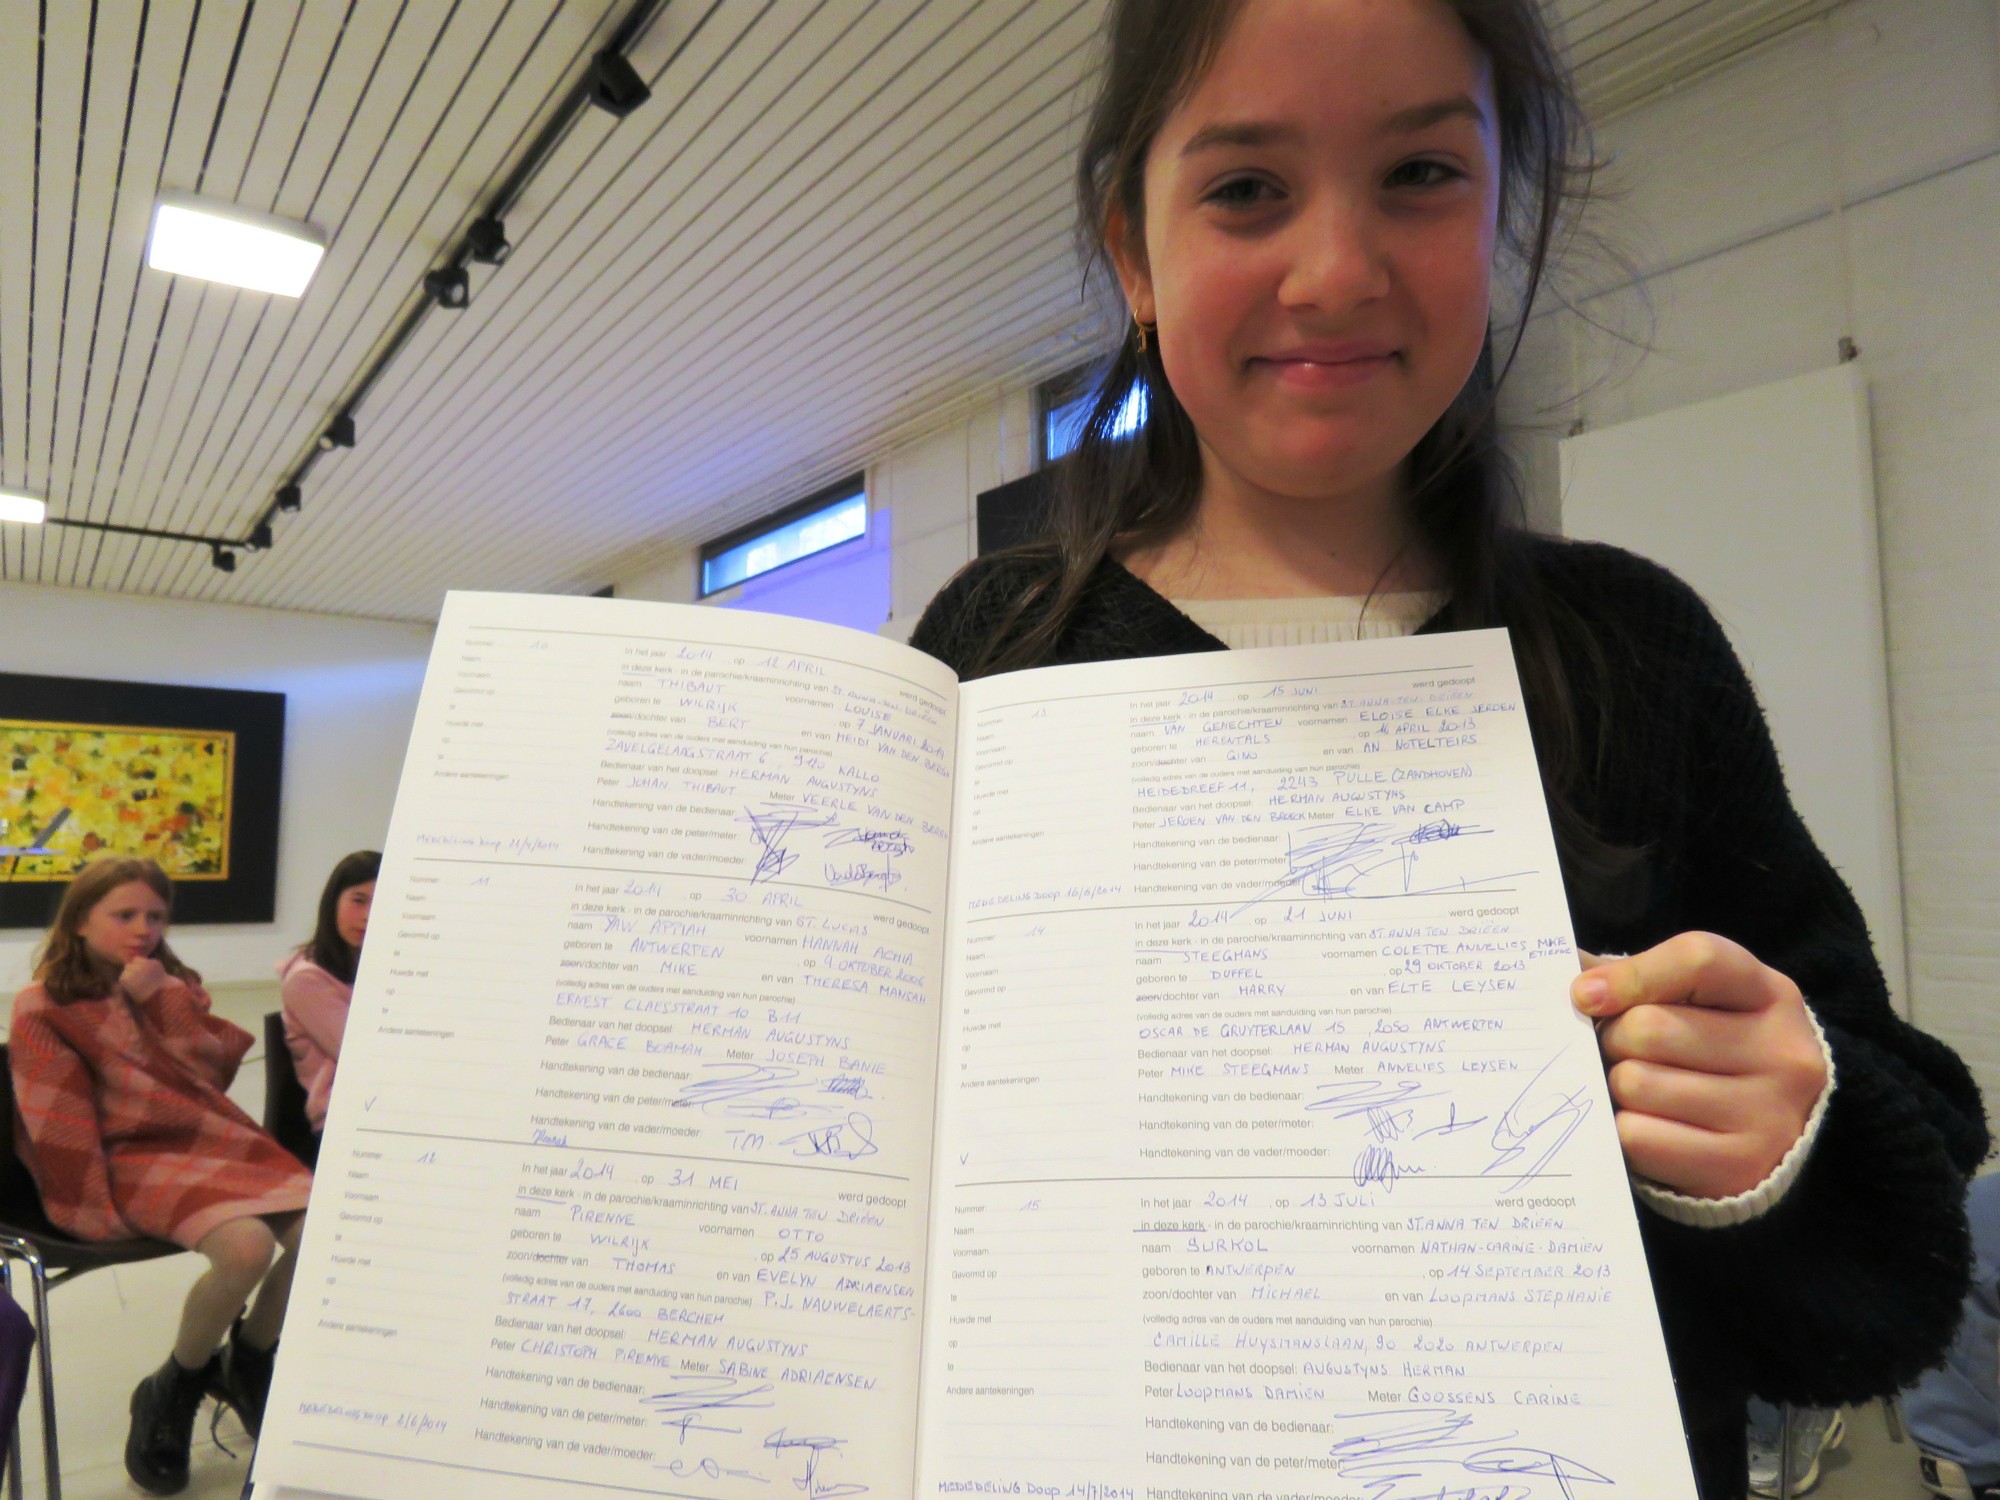 Nummer 10
Naam
Voornaam
Gevormd op
te
Huwde met
op
te
Andere aantekeningen
MEDEDELING DOOP 22/4/2014
In het jaar 2014 , op 12 APRIL
werd gedoopt
in deze kerk - in de parochie/kraaminrichting van ST. ANNA-TEN-DRIEËN
naam THIBAUT voornamen LOUISE
geboren te WILRIJK , op 7 JANUARI 2014
zoon/dochter van BERT en van HEIDI VAN DEN BERGH
(volledig adres van de ouders met aanduiding van hun parochie)
ZAVELGELAAGSTRAAT 6, 9120 KALLO
Bedienaar van het doopsel: HERMAN AUGUSTYNS
Peter JOHAN THIBAUT Meter VEERLE VAN DEN BERGH
Handtekening van de bedienaar:
Handtekening van de peter/meter:
Handtekening van de vader/moeder:
Nummer 11
Naam
Voornaam
Gevormd op
te
Huwde met
op
te
Andere aantekeningen
V
In het jaar 2014 op 30 APRIL
werd gedoopt
in deze kerk - in de parochie/kraaminrichting van ST. LUCAS
naam YAW APPIAH voornamen HANNAH ACHIA
geboren te ANTWERPEN , op 4 OKTOBER 2006
zoon/dochter van MIKE en van THERESA MANSAH
(volledig adres van de ouders met aanduiding van hun parochie)
ERNEST CLAESSTRAAT 10 B11
Bedienaar van het doopsel: HERMAN AUGUSTYNS
Peter GRACE BOAMAH Meter JOSEPH BANIE
Handtekening van de bedienaar:
Handtekening van de peter/meter:
Handtekening van de vader/moeder: TM
Nummer 12
Naam
Voornaam
Gevormd op
te
Huwde met
op
te
Andere aantekeningen
MEDEDELING DOOP 2/6/2014
In het jaar 2014 , op 31 MEI
werd gedoopt
in deze kerk - in de parochie/kraaminrichting van ST. ANNA TEN DRIEËN
naam PIRENNE voornamen OTTO
geboren te WILRIJK , op 25 AUGUSTUS 2013
zoon/dochter van THOMAS en van EVELYN ADRIAENSEN
(volledig adres van de ouders met aanduiding van hun parochie) P.J. NAUWELAERTS-
STRAAT 17, 2600 BERCHEM
Bedienaar van het doopsel: HERMAN AUGUSTYNS
Peter CHRISTOPH PIRENNE Meter SABINE ADRIAENSEN
Handtekening van de bedienaar:
Handtekening van de peter/meter:
Handtekening van de vader/moeder:
Nummer 13
Naam
Voornaam
Gevormd op
te
Huwde met
op
te
Andere aantekeningen
MEDEDELING DOOP 16/6/2014
In het jaar 2014 , op 15 JUNI werd gedoopt
in deze kerk - in de parochie/kraaminrichting van ST. ANNA-TEN DRIEËN
naam VAN GENECHTEN voornamen ELOISE ELKE JEROEN
geboren te HERENTALS , op 16 APRIL 2013
zoon/dochter van GINO en van AN NOTELTEIRS
(volledig adres van de ouders met aanduiding van hun parochie)
HEIDEDREEF 11, 2243 PULLE (ZANDHOVEN)
Bedienaar van het doopsel: HERMAN AUGUSTYNS
Peter JEROEN VAN DEN BROECK Meter ELKE VAN CAMP
Handtekening van de bedienaar:
Handtekening van de peter/meter:
Handtekening van de vader/moeder:
Nummer 14
Naam
Voornaam
Gevormd op
te
Huwde met
op
te
Andere aantekeningen
V
In het jaar 2014 , op 21 JUNI werd gedoopt
in deze kerk - in de parochie/kraaminrichting van ST. ANNA TEN DRIEËN
naam STEEGMANS voornamen COLETTE ANNELIES MIKE
ETIENNE
geboren te DUFFEL , op 29 OKTOBER 2013
zoon/dochter van HARRY en van ELTE LEYSEN
(volledig adres van de ouders met aanduiding van hun parochie)
OSCAR DE GRUYTERLAAN 15 , 2050 ANTWERPEN
Bedienaar van het doopsel: HERMAN AUGUSTYNS
Peter MIKE STEEGMANS Meter ANNELIES LEYSEN
Handtekening van de bedienaar:
Handtekening van de peter/meter:
Handtekening van de vader/moeder:
Nummer 15
Naam
Voornaam
Gevormd op
te
Huwde met
op
te
Andere aantekeningen
MEDEDELING DOOP 14/7/2014
In het jaar 2014 , op 13 JULI werd gedoopt
in deze kerk - in de parochie/kraaminrichting van ST. ANNA TEN DRIEËN
naam SURKOL voornamen NATHAN-CARINE-DAMIEN
geboren te ANTWERPEN , op 14 SEPTEMBER 2013
zoon/dochter van MICHAEL en van LOOPMANS STEPHANIE
(volledig adres van de ouders met aanduiding van hun parochie)
CAMILLE HUYSMANSLAAN, 90 2020 ANTWERPEN
Bedienaar van het doopsel: AUGUSTYNS HERMAN
Peter LOOPMANS DAMIEN Meter GOOSSENS CARINE
Handtekening van de bedienaar:
Handtekening van de peter/meter:
Handtekening van de vader/moeder: